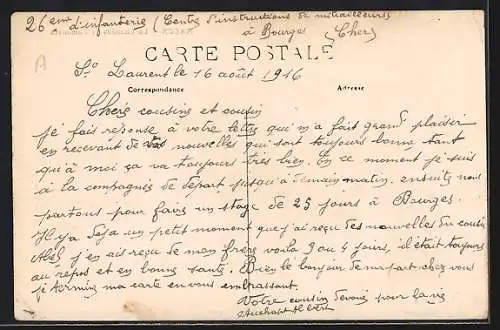 26eme d'infanterie (Centre d'instructions de mitrailleurs
à Bourges (Cher)
CARTE POSTALE
St Laurent le 16 août 1916
Correspondance Adresse
Chers cousine et cousin
je fais réponse à votre lettre qui m'a fait grand plaisir
en recevant de vos nouvelles qui sont toujours bonne tant
qu'à moi ça va toujours très bien. En ce moment je suis
à la compagnie de départ jusqu'à demain matin, ensuite nous
partons pour faire un stage de 25 jours à Bourges.
Il y a déja un petit moment que j'ai reçu des nouvelles du cousin
Abel j'en ais reçu de mon frère voila 3 ou 4 jours, il était toujours
au repos et en bonne santé. Bien le bonjour de ma part chez vous
je termine ma carte en vous embrassant.
Votre cousin dévoué pour la vie